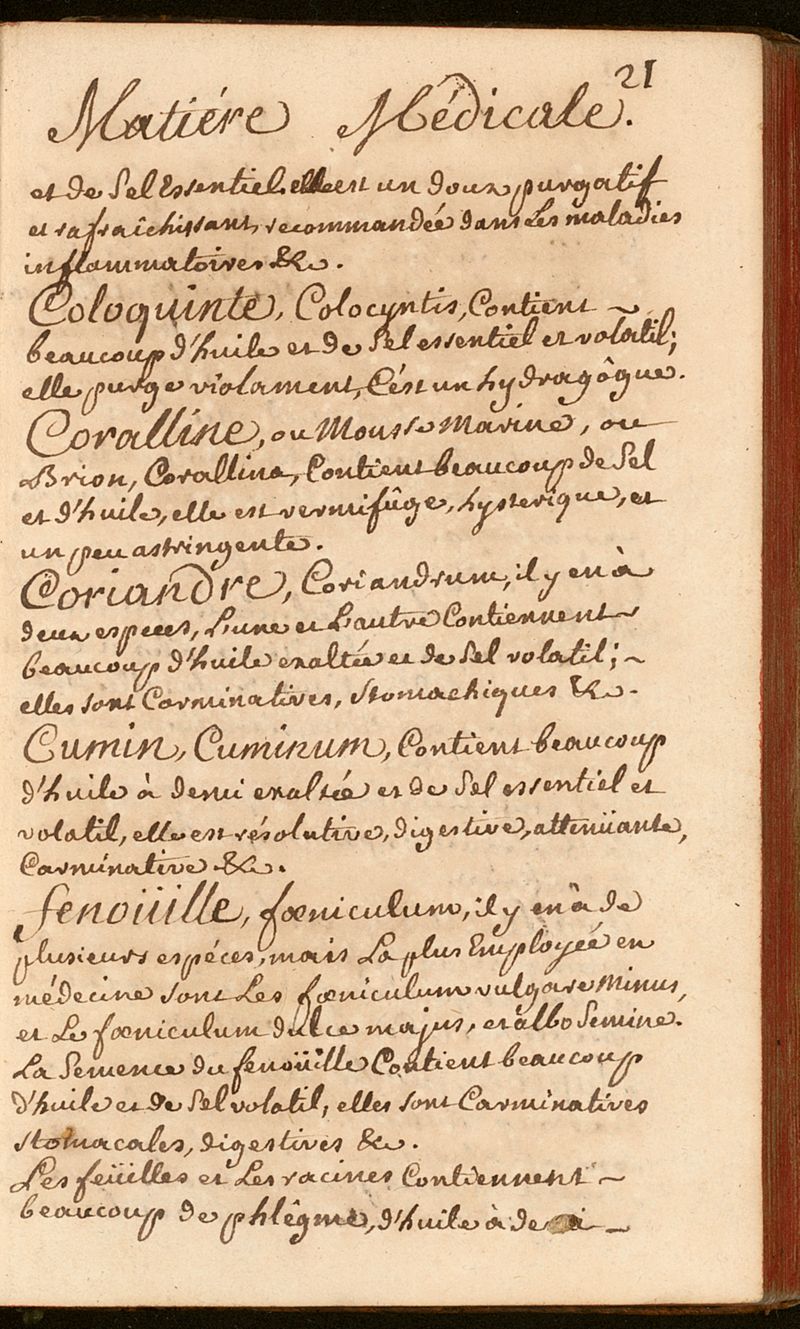 21
Matiére Médicale.
et de Sel Essentiel. elle est un doux purgatif
et rafraîchissant, recommandée dans Les maladies
inflammatoires &c.
Coloquinte, Colocyntis, Contient ~
beaucoup d'huile et de Sel essentiel et volatil;
elle purge violament, C'ést un hydragôgue.
Coralline, ou Mousse Marine, ou
Brion, Corallina, Contient beaucoup de Sel
et d'huile, elle est vermifûge, hysterique, et
un peu astringente.
Coriandre, Coriandrum, il y en à
deux especes, L'une et L'autre Contiennent ~
beaucoup d'huile exaltée et de Sel volatil; ~
elles sont Carminatives, Stomachiques &c.
Cumin, Cuminum, Contient beaucoup
d'huile à demi exaltée et de Sel essentiel et
volatil, elle est résolutive, digestive, attenüante,
Carminative &c.
fenoüille, fœniculum, il y en à de
plusieurs espéces, mais La plus Employéé en
médecine sont Les fœniculum vulgare Minus,
et Le fœniculum dulce majus, et albo Semine.
La Semence du fenoüille Contient beaucoup
d'huile et de Sel volatil, elles sont Carminatives
stomacales, digestives &c.
Les feüilles et Les racines Contiennent ~
beaucoup de phlêgme, d'huile à de